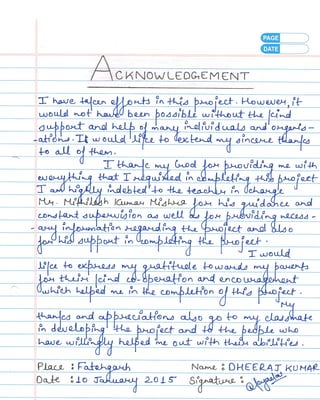 PAGE
DATE
ACKNOWLEDGEMENT
I have taken efforts in this project. However, it
would not have been possible without the kind
support and help of many individuals and organis-
-ations. I would like to extend my sincere thanks
to all of them.
I thank my God for providing me with
everything that I required in completing this project
I am highly indebted to the teacher in charge
Mr. Mithilesh Kumar Mishra for his guidance and
constant supervision as well as for providing necess-
-ary information regarding the project and also
for his support in completing the project.
I would
like to express my gratitude towards my parents
for their kind co-operation and encouragement
which helped me in the completion of this project.
My
thanks and appreciations also go to my classmate
in developing the project and to the people who
have willingly helped me out with their abilities.
Place : Fatehgarh Name : DHEERAJ KUMAR
Date : 10 January 2015 Signature :